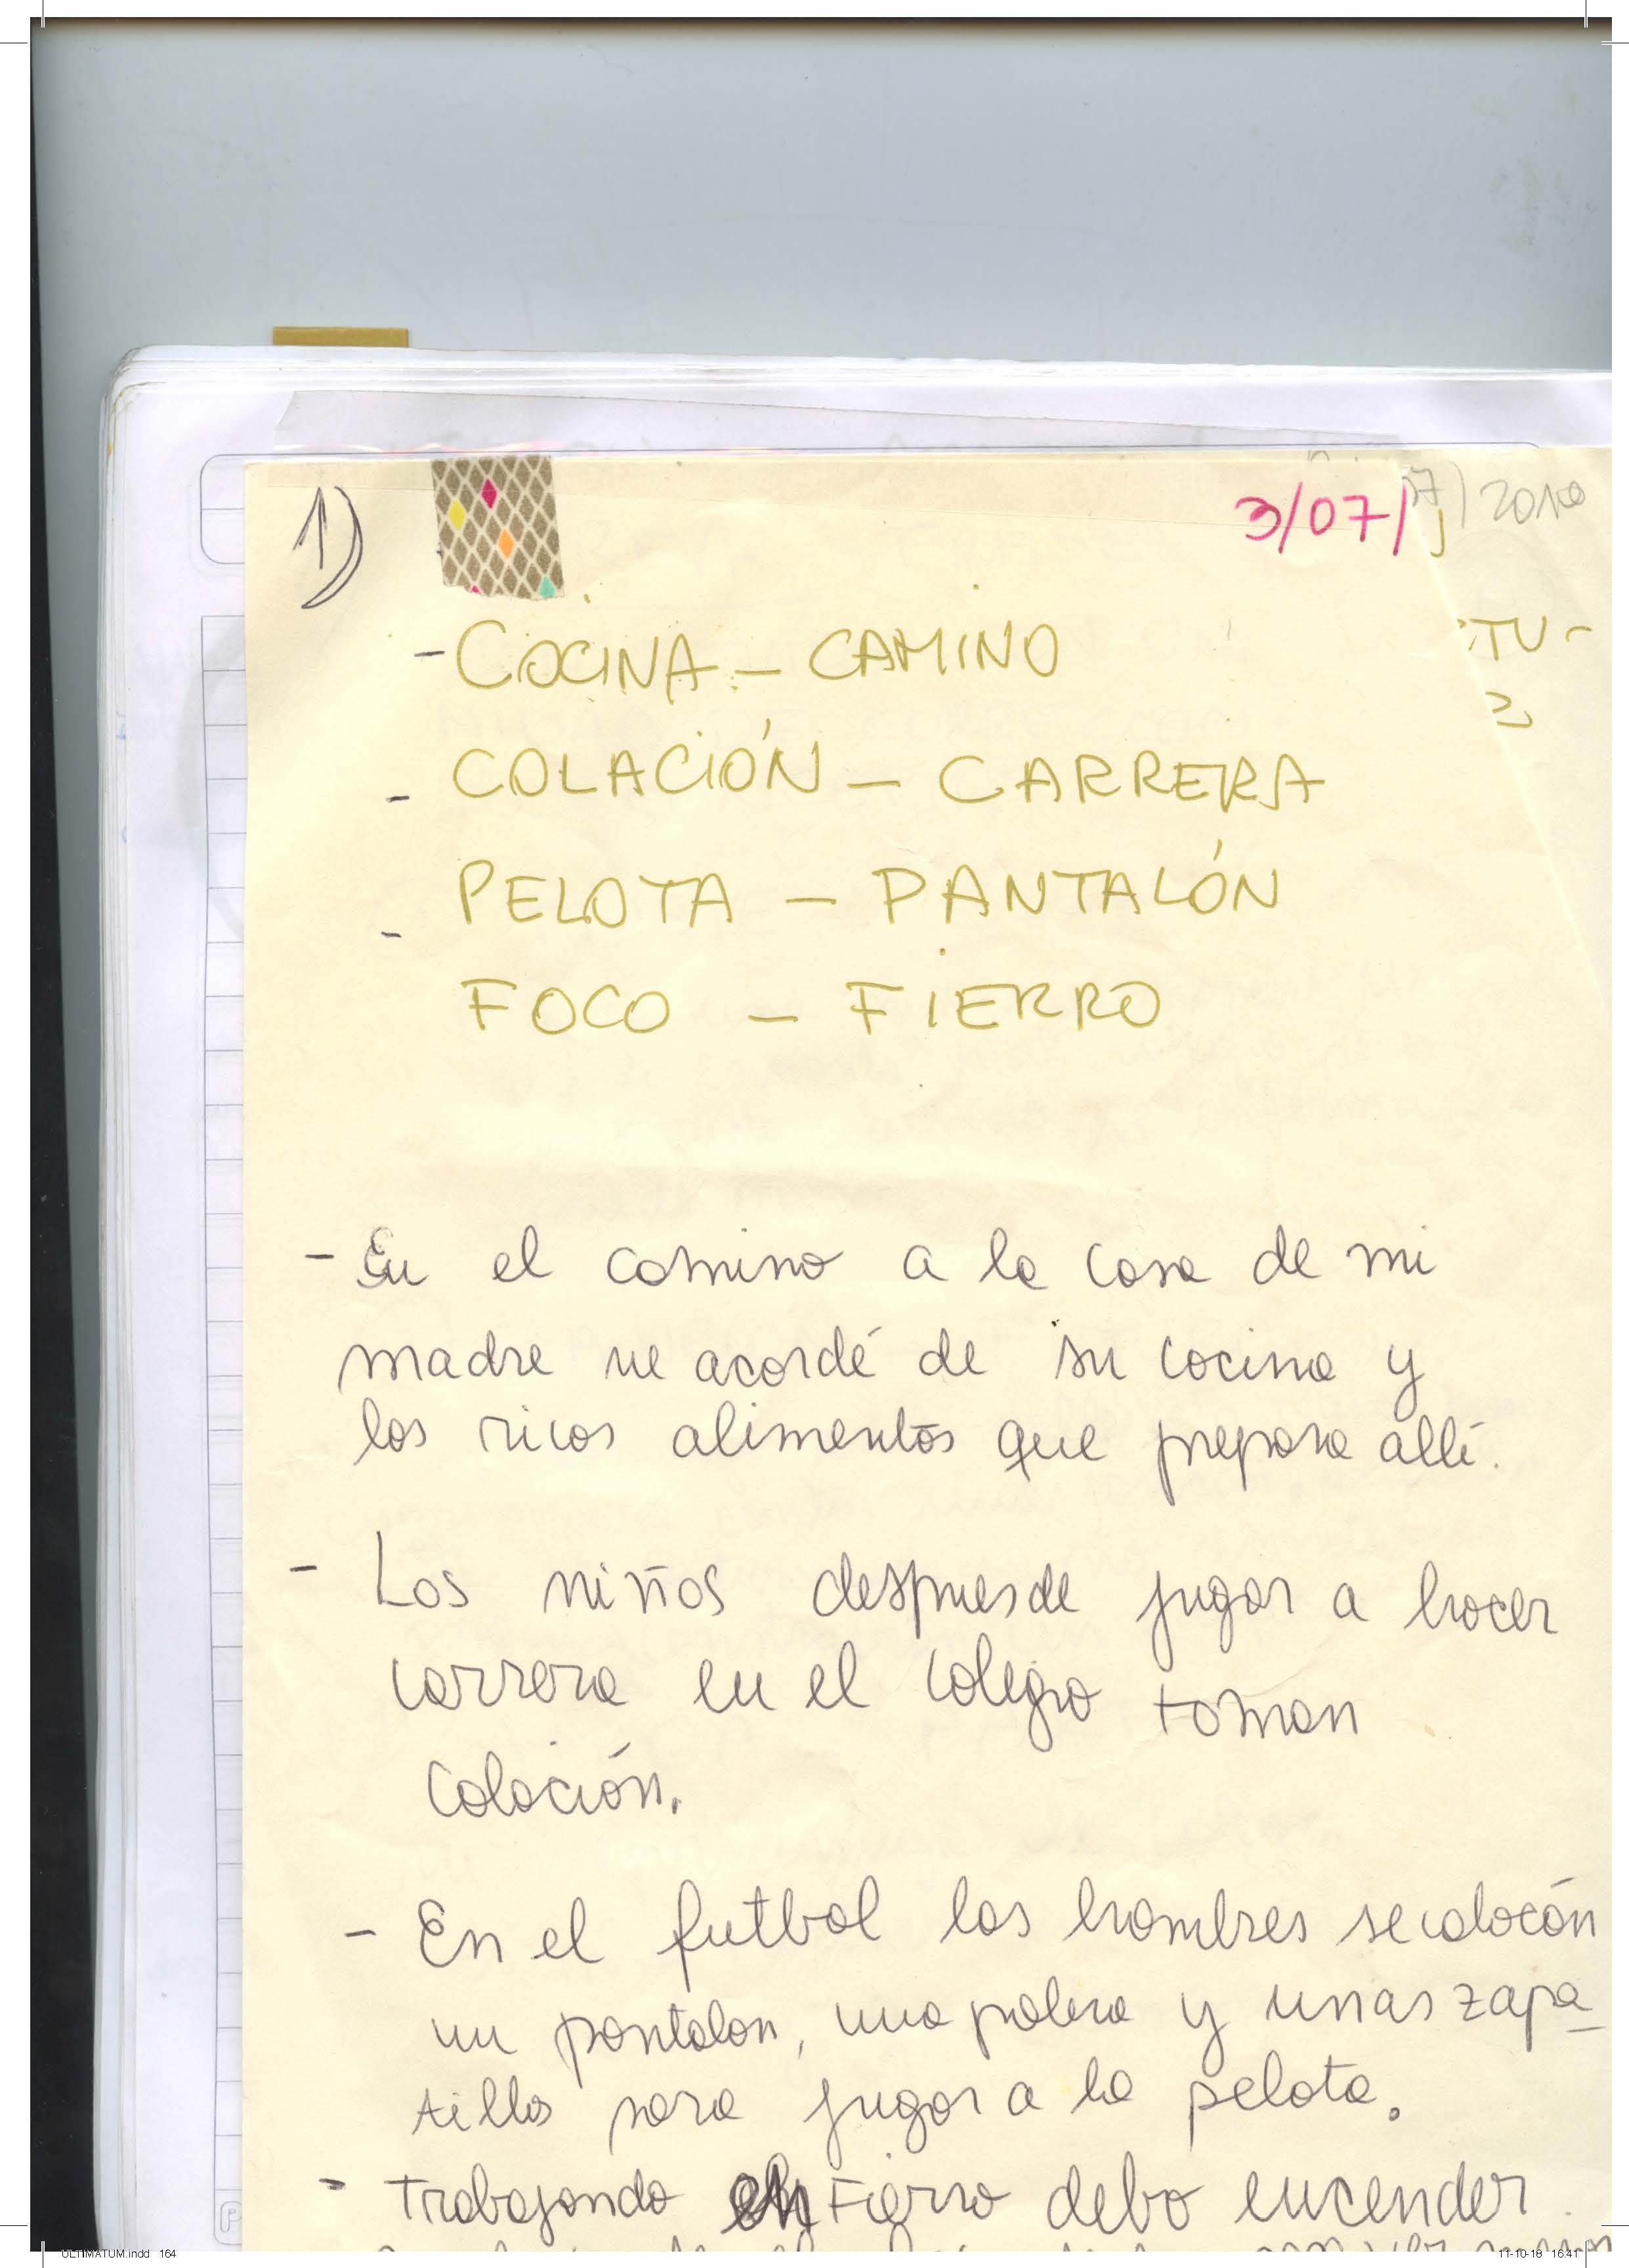 1)
3/07/
7/2010
- COCINA - CAMINO
TU-
- COLACIÓN - CARRERA
- PELOTA - PANTALÓN
FOCO - FIERRO
- En el camino a la casa de mi
madre me acordé de su cocina y
los ricos alimentos que prepara allí.
- Los niños despues de jugar a hacer
carrera en el colegio toman
colación.
- En el futbol los hombres se colocón
un pantalon, una polera y unas zapa-
tillas para jugar a la pelota.
- Trabajando en Fierro debo encender
ULTIMATUM.indd 164
11-10-18 16:41